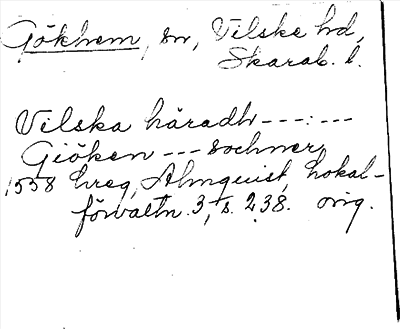 Gökhem, sn, Vilske hd,
Skarab. l.
Vilska häradh ---:---
Giöken --- sochner,
1558 hreg, Almquist, Lokal-
förvaltn. 3, s. 238. orig.